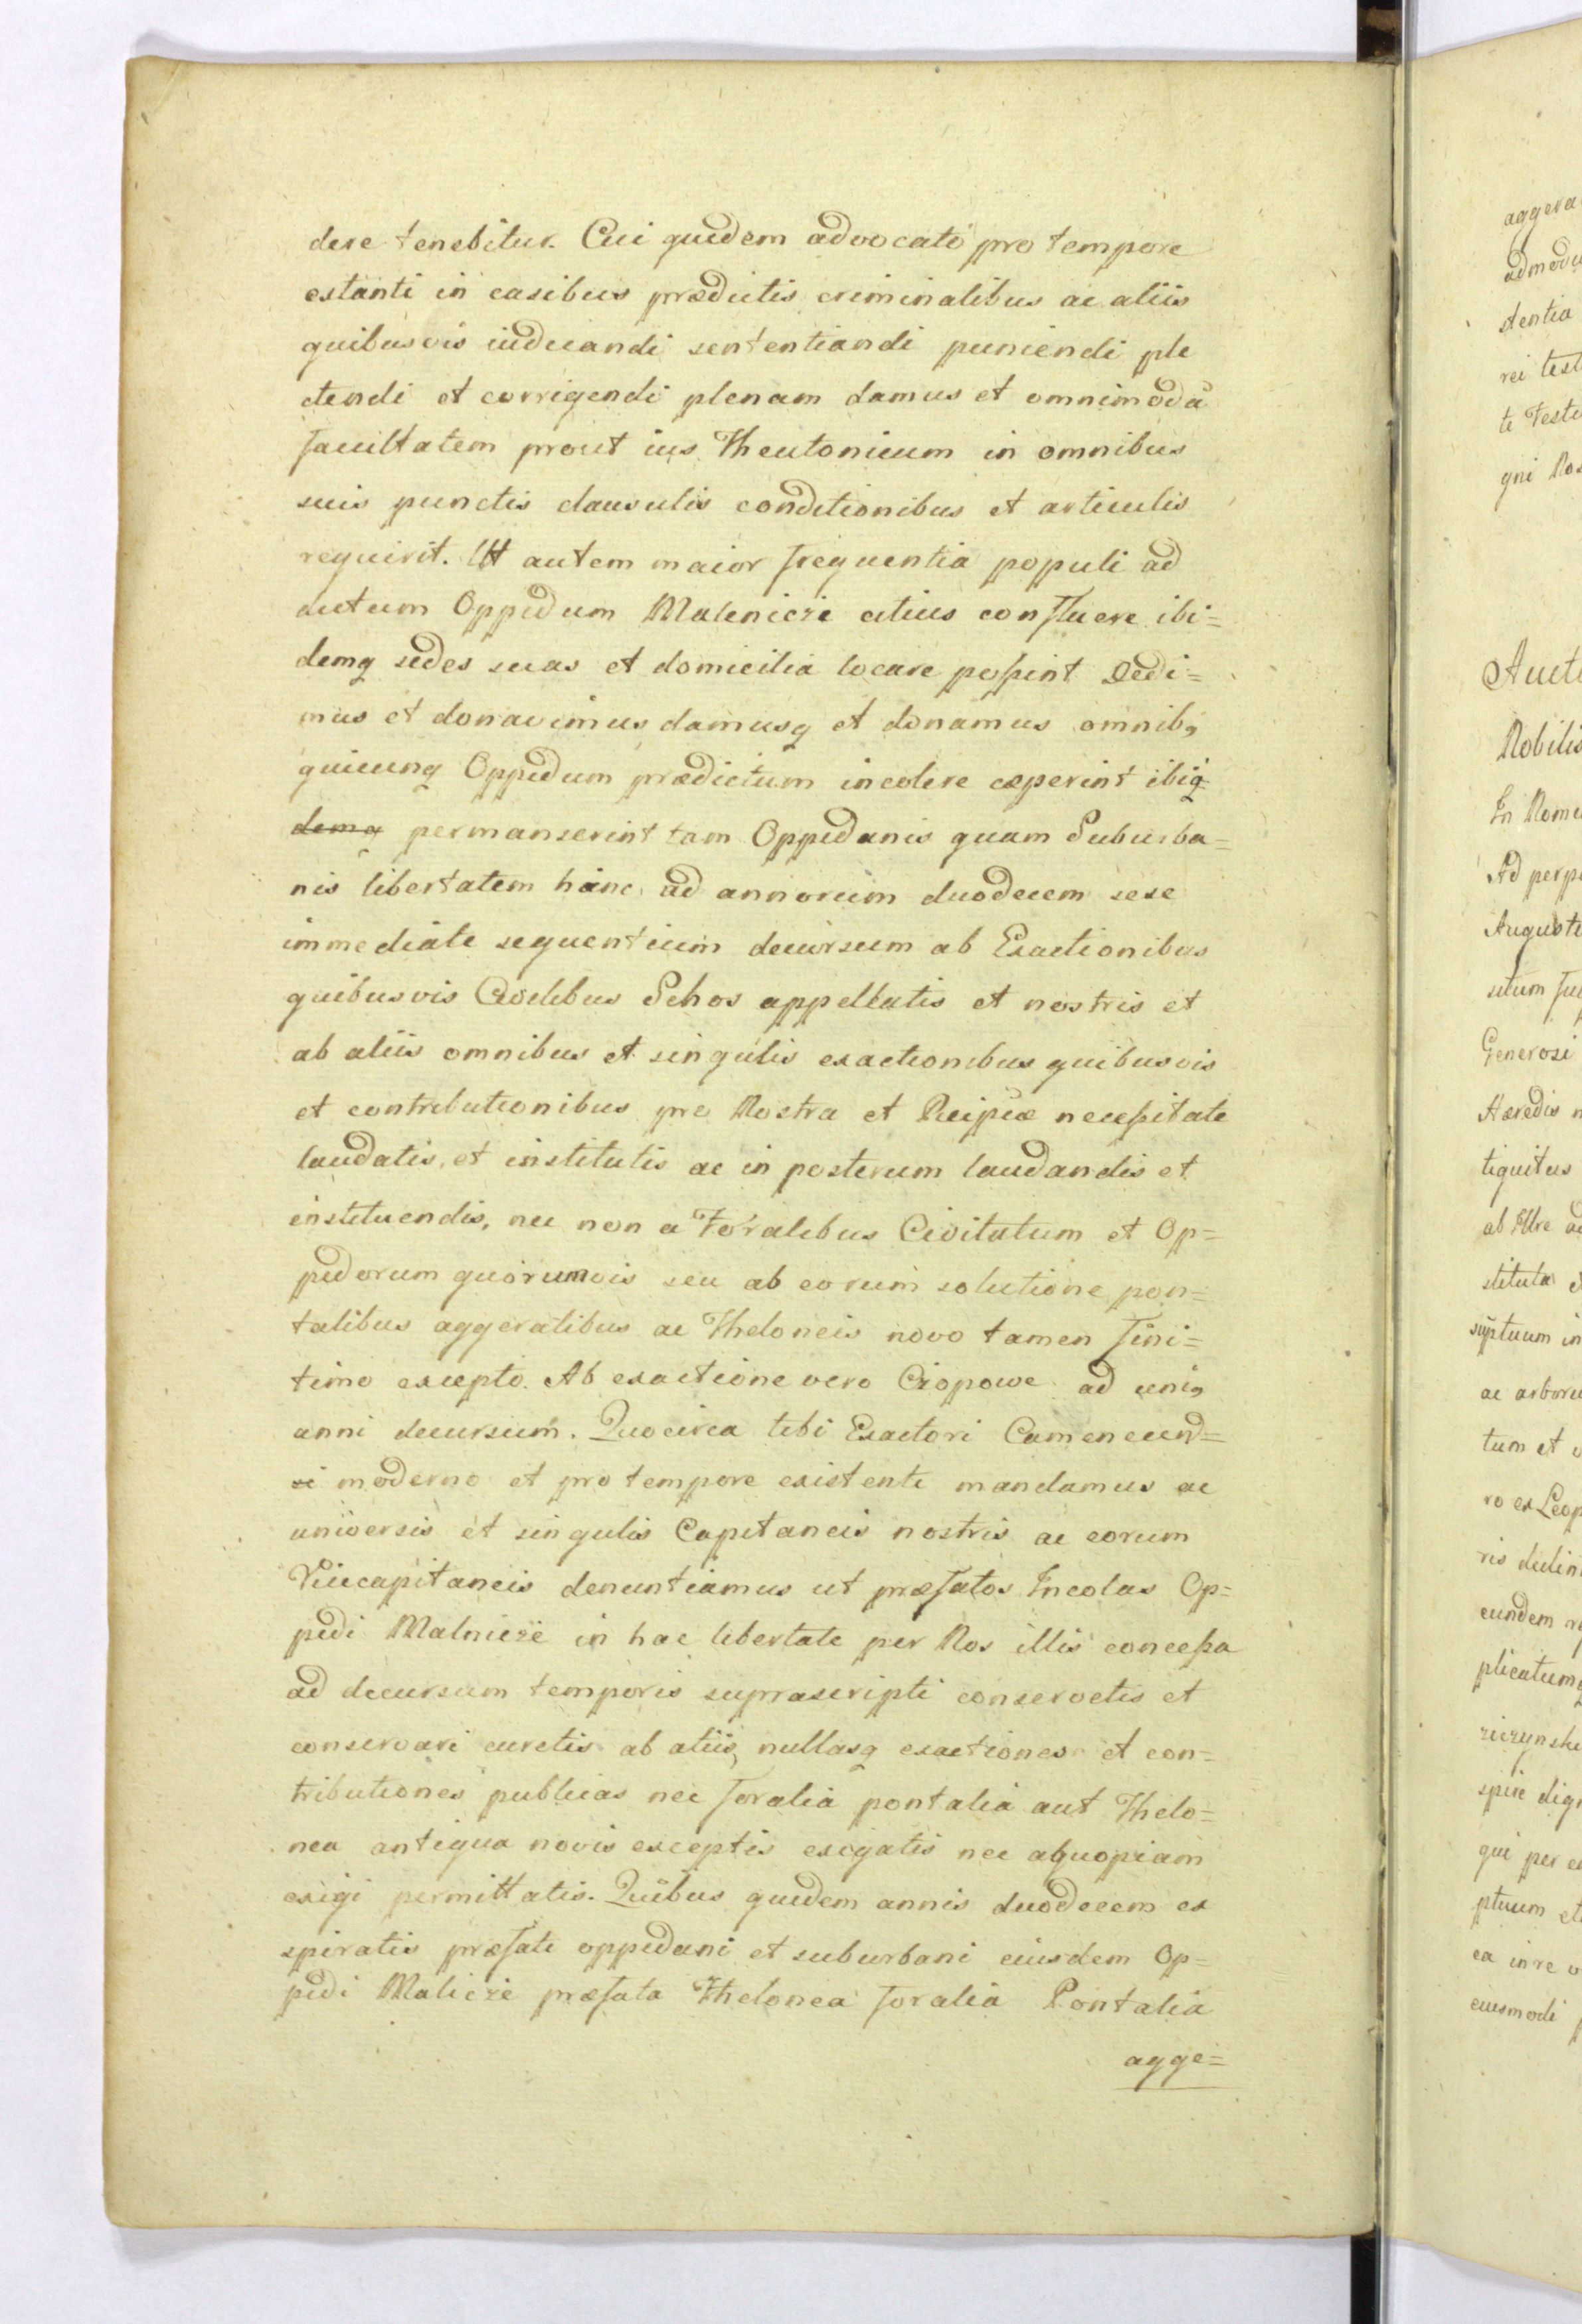 dere tenebitur. Cui quidem advocato pro tempore
extanti in casibus prædictis criminalibus ac aliis
quibusvis iudicandi sententiandi puniendi ple
ctendi et corrigendi plenam damus et omnimodã
facultatem prout ius Theutonicum in omnibus
suis punctis clausulis conditionibus et articulis
requirit. Ut autem maior frequentia populi ad
dictum Oppidum Malenicze citius confluere ibi=
demq sedes suas et domicilia locare poßint Dedi=
mus et donavimus damusq et donamus omnibq
quicunq Oppidum prædictum incolere cæperint ibiq
demq permanserint tam Oppidanis quam Suburba=
nis libertatem hanc ad annorum duodecem sese
immediate sequentium decursum ab Exactionibus
quibusvis Civilibus Schos appellatis et nostris et
ab aliis omnibus et singulis exactionibus quibusvis
et contributionibus pro Nostra et Reipcæ neceßitate
laudatis, et institutis ac in posterum laudandis et
instituendis, nec non a Foralibus Civitatum et Op=
pidorum quorumvis seu ab eorum solutione pon=
talibus aggeralibus ac Theloneis novo tamen fini=
timo excepto. Ab exactione vero Czopowe ad uniq
anni decursum. Quocirca tibi Exactori Camenecen=
si moderno et pro tempore existenti mandamus ac
universis et singulis Capitaneis nostris ac eorum
Vicecapitaneis denuntiamus ut præfatos Incolas Op=
pidi Malnicze in hac libertate per Nos illis conceßa
ad decursum temporis suprascripti conservetis et
conservari curetis ab aliis, nullasq exactiones et con=
tributiones publicas nec foralia pontalia aut Thelo=
nea antiqua novis exceptis exigatis nec aquopiam
exigi permittatis. Quibus quidem annis duodecem ex
spiratis præfati oppidani et suburbani eiusdem Op=
pidi Malicze præfata Thelonea foralia Pontalia
agge=
aggera
admodu
dentia
rei test
te Festo
gni Nos
Aucti
Nobilis
In Nome
Ad perp
Auguste
Generosi
Hæredis n
tiquitus
stituta
ac arboru
tum et
ro ex Leop
eundem
plicatumq
spire dign
qui per e
ptuum et
ea in re
eiusmodi